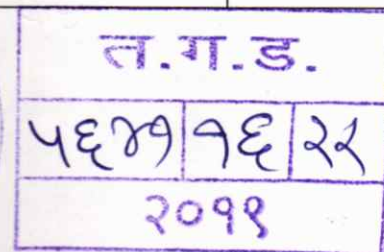 त.ग.ड.
५६४१ १६ २२
२०१९